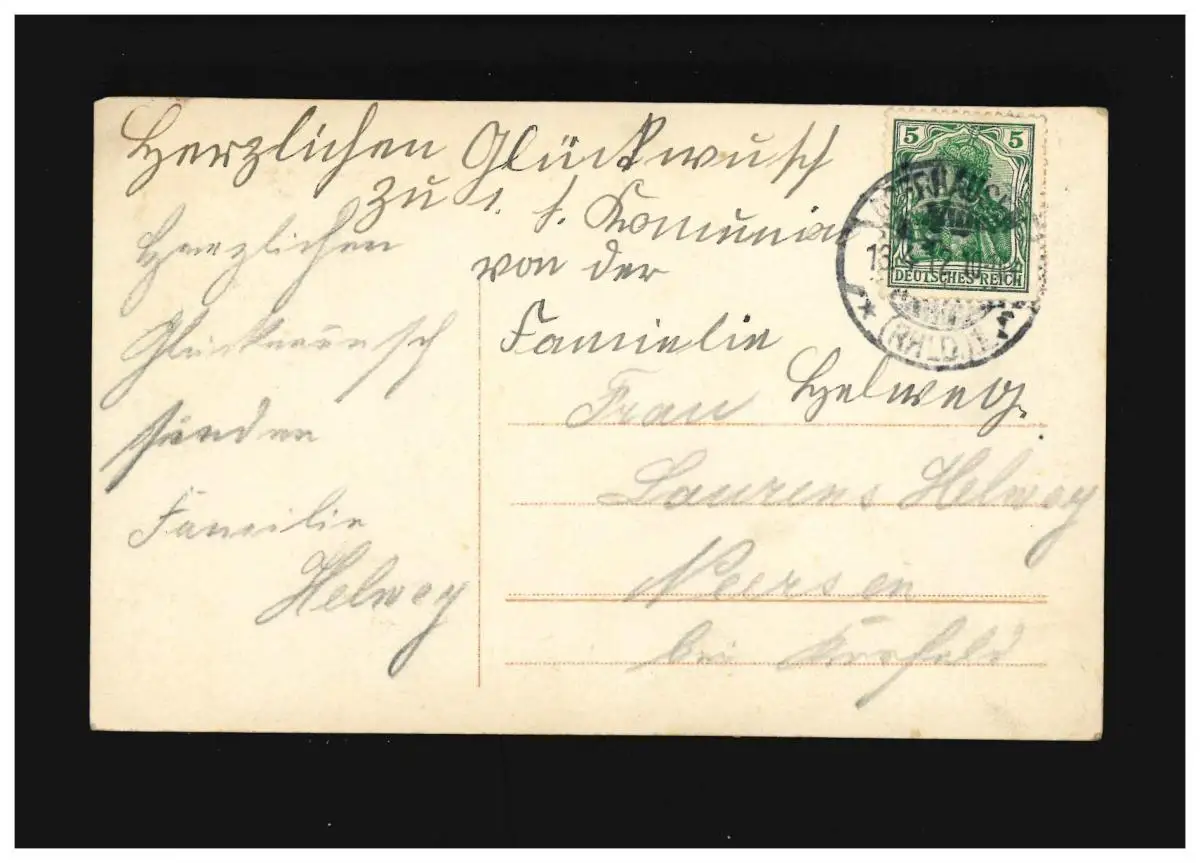 Herzlichen Glückwusch
zu 1. f. Komunion
von der
Famielie
Helweg.
Herzlichen
Glückwunsch
senden
Familie
Helweg
5 5
DEUTSCHES REICH
OBERHAUSEN
(RHLD.)
Frau
Laurens Helweg
Neersen
bei Krefeld